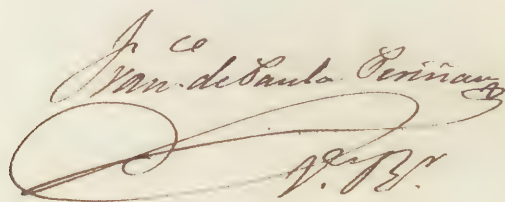 Fran.ce de Paula Periñan
V.e Br.